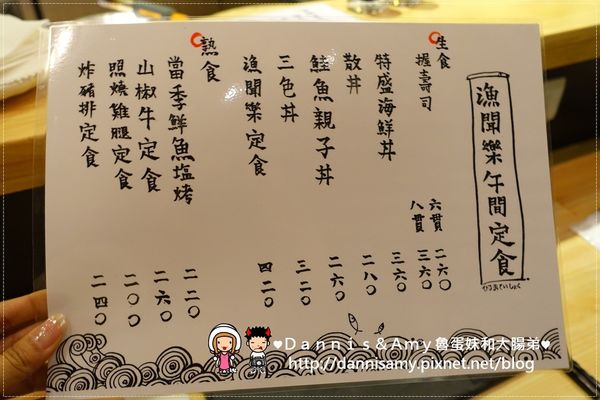 漁聞樂午間定食
ひるおていしょく
生食
握壽司 六貫 二六〇
八貫 三六〇
特盛海鮮丼 三六〇
散丼 二八〇
鮭魚親子丼 二六〇
三色丼 三二〇
漁聞樂定食 四二〇
熟食
當季鮮魚塩烤 二二〇
山椒牛定食 二六〇
照燒雞腿定食 二〇〇
炸豬排定食 二四〇
♥Dannis&Amy魯蛋妹和大腸弟♥
http://dannisamy.pixnet.net/blog